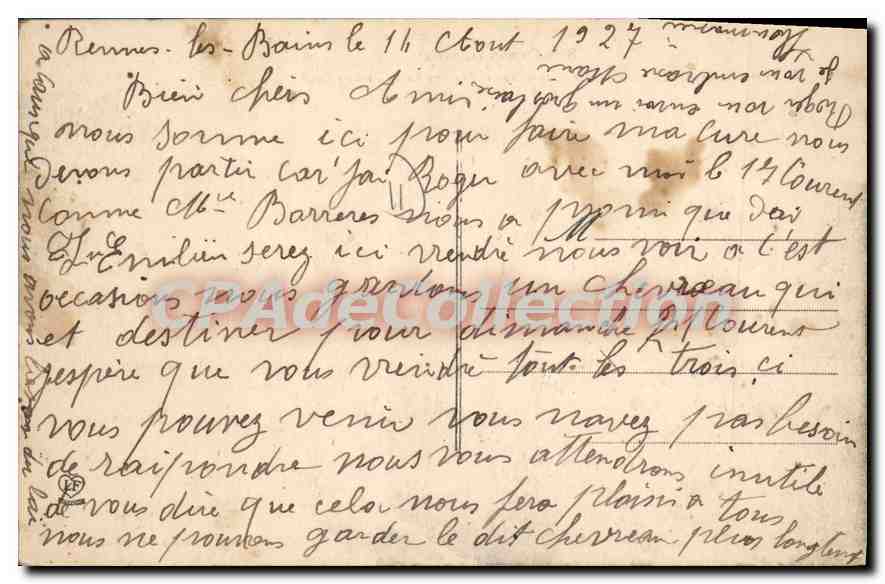 Rennes-les-Bains le 14 Aout 1927
Bien chers Amis
nous somme ici pour faire ma cure nous
devons partir car j'ai Roger avec moi le 17 Courent
comme Mme Barreres nous a promi que dai
Emilien serez ici vendre nous voir a c'est
occasions nous gardons un chevreau qui
et destiner pour dimanche Courent
jespère que vous viendré tout les trois si
vous pouvez venir vous navez pas besoin
de raipondre nous vous attendrons inutile
de vous dire que cela nous fera plaisir a tous
nous ne pouvons garder le dit chevreau plus longtemp
Roger vous envoi un gros
je vous embrasse Marie
a nous avons besoin du lai
LF
CPAdeCollection